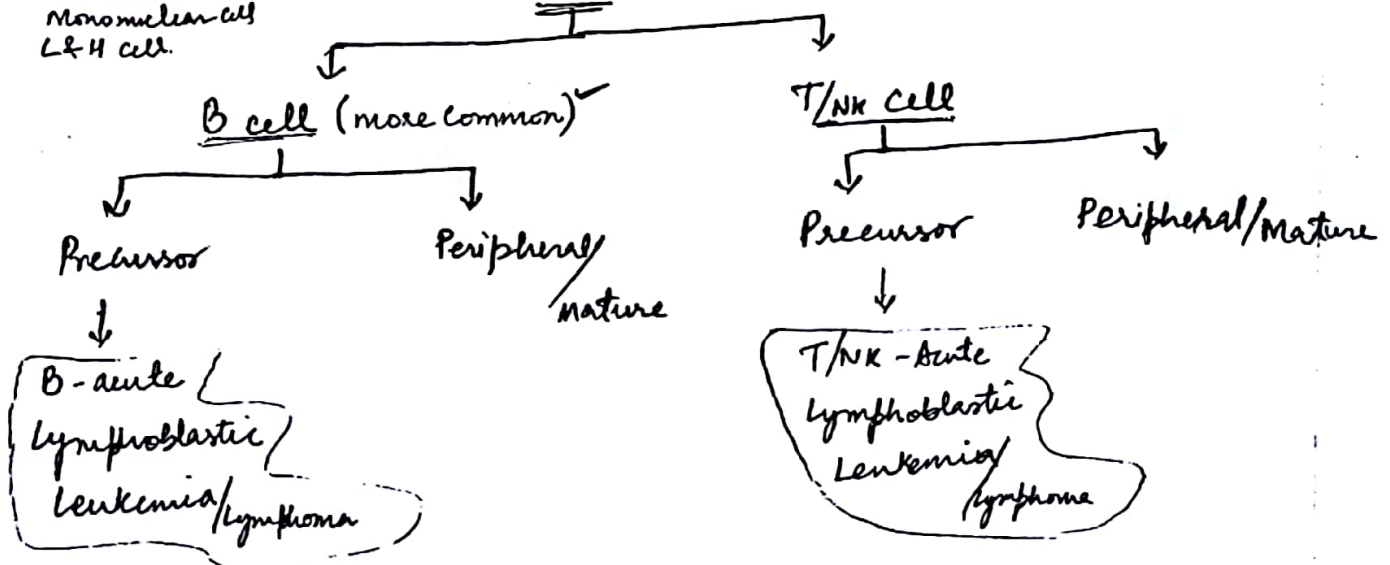 Mononuclear cells
L&H cell.
B cell (more common)
T/NK cell
Precursor
Peripheral/
Mature
Precursor
Peripheral/Mature
B-acute
Lymphoblastic
Leukemia/Lymphoma
T/NK-Acute
Lymphoblastic
Leukemia/
Lymphoma